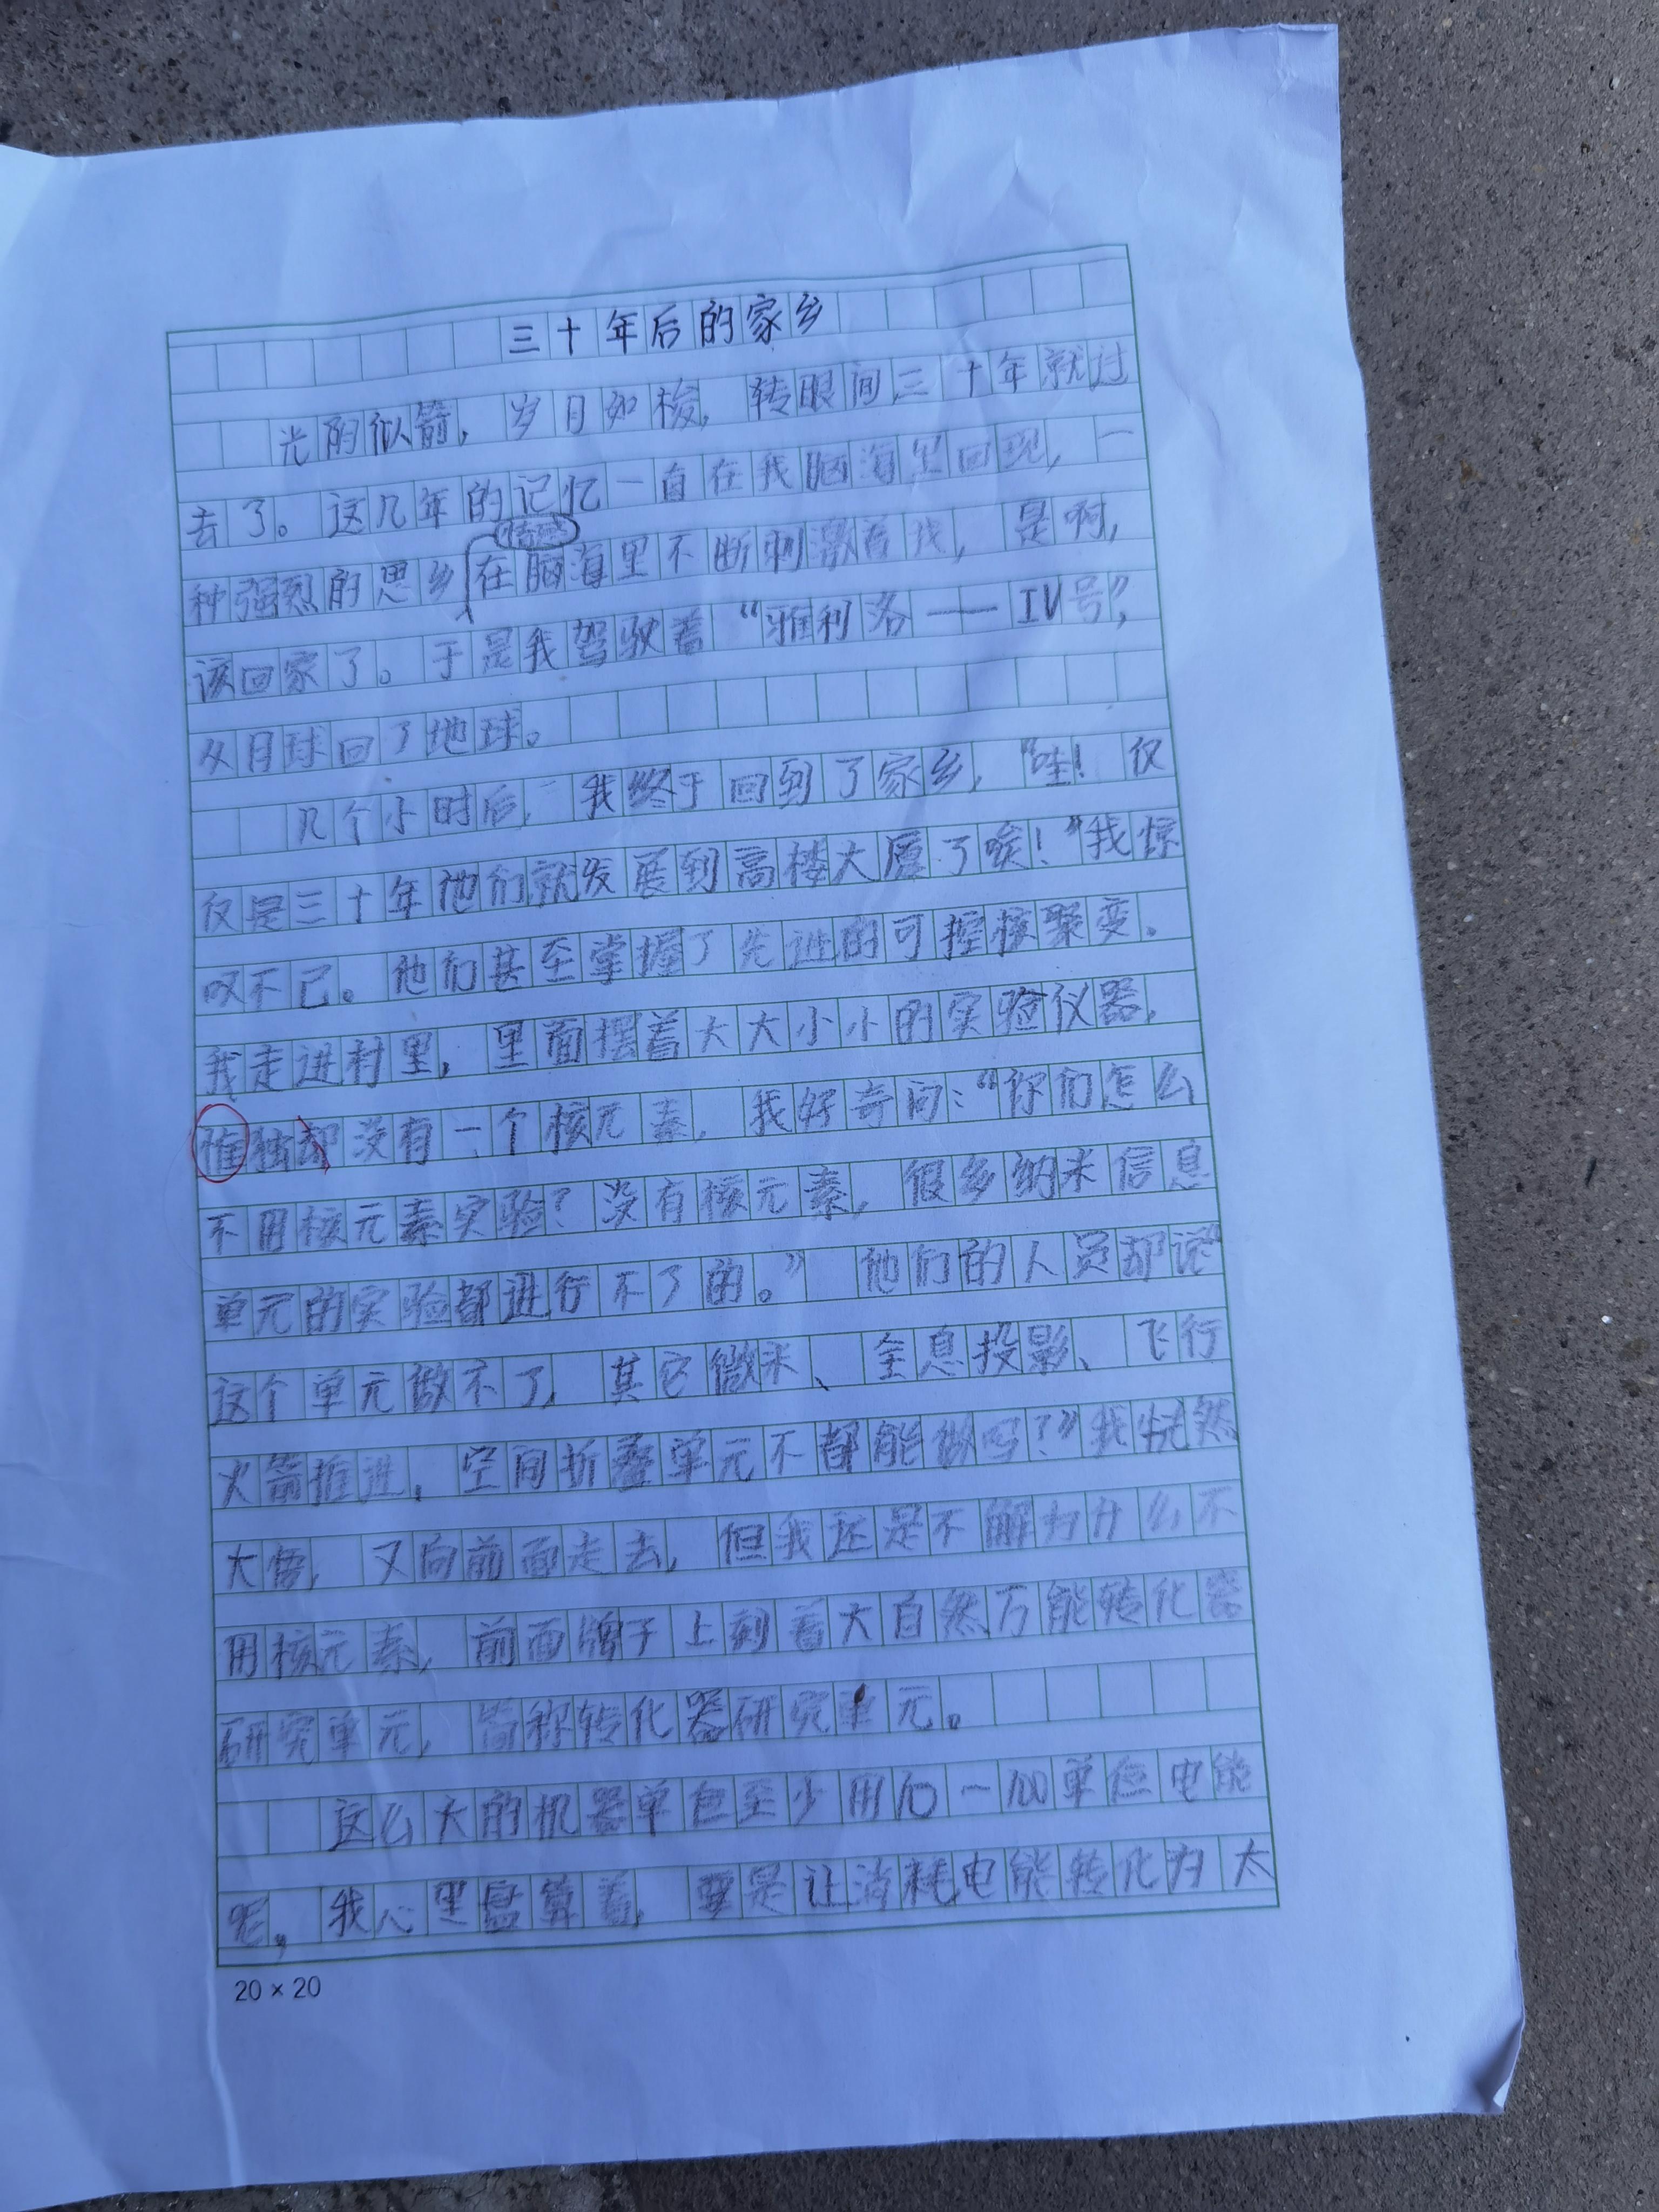 三十年后的家乡
光阴似箭，岁月如梭，转眼间三十年就过
去了。这几年的记忆一直在我脑海里回现，一
种强烈的思乡情感在脑海里不断刺激着我，是啊，
该回家了。于是我驾驶着“雅利洛——IV号”，
从月球回了地球。
几个小时后，我终于回到了家乡，“哇！仅
仅是三十年他们就发展到高楼大厦了唉！”我惊
叹不已。他们甚至掌握了先进的可控核聚变。
我走进村里，里面摆着大大小小的实验仪器，
惟独却没有一个核元素，我好奇问：“你们怎么
不用核元素实验？没有核元素，很多纳米信息
单元的实验都进行不了的。”他们的人员却说“
这个单元做不了，其它微米、全息投影、飞行
火箭推进，空间折叠单元不都能做吗？”我恍然
大悟，又向前面走去，但我还是不解为什么不
用核元素，前面牌子上刻着大自然万能转化器
研究单元，简称转化器研究单元。
这么大的机器单包至少用10一100单位电能
呢，我心里盘算着，要是让消耗电能转化为太
20×20